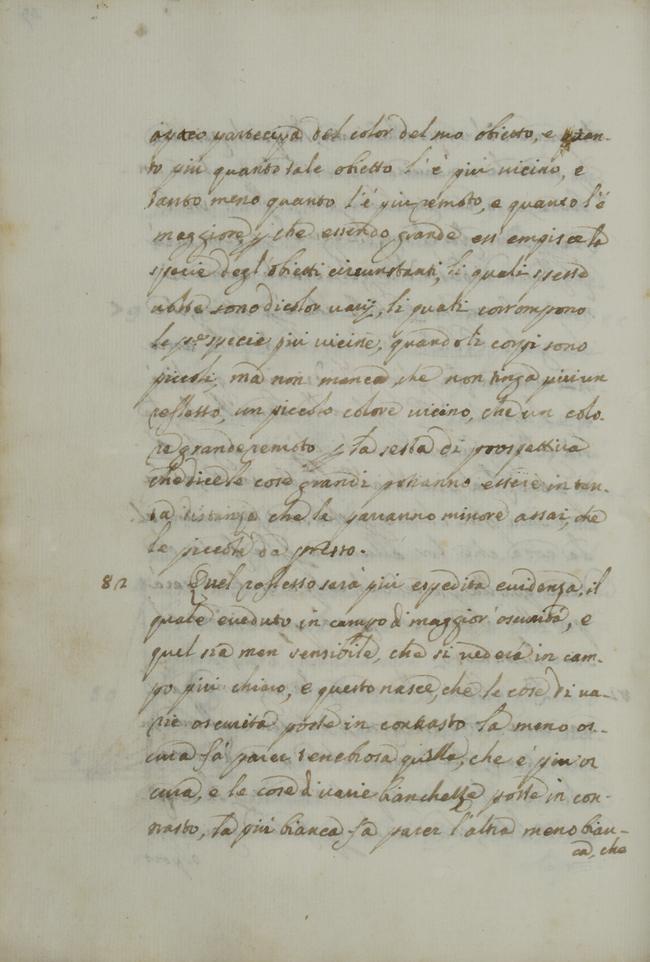 opaco partecipa del color del suo obietto, e quan-
to più quanto tale obietto l'è più vicino, e
tanto meno quanto l'è più remoto, e quanto l'è
maggiore, p che essendo grande ess empisce la
specie degl'obietti circunstanti, li quali spesse
volte sono di color varij, li quali corrompono
le pe specie più vicine, quando li corpi sono
piccoli, ma non manca, che non tinga più un
reflesso, un piccolo colore vicino, che un colo-
re grande remoto p la sesta di prospettiva
che dice le cose grandi potranno essere in tan-
ta distanza che le parranno minore assai, che
le piccole da presso.
82 Quel reflesso sarà più espedita evidenza, il
quale è veduto in campo di maggior' oscurità, e
quel sia men sensibile, che si vederà in cam-
po più chiaro, e questo nasce, che le cose di va-
rie oscurità poste in contrasto la meno os-
cura fà parer tenebrosa quella, che è più os
cura, e le cose di varie bianchezze poste in con-
trasto, la più bianca fà parer l'altra meno bian-
ca, che